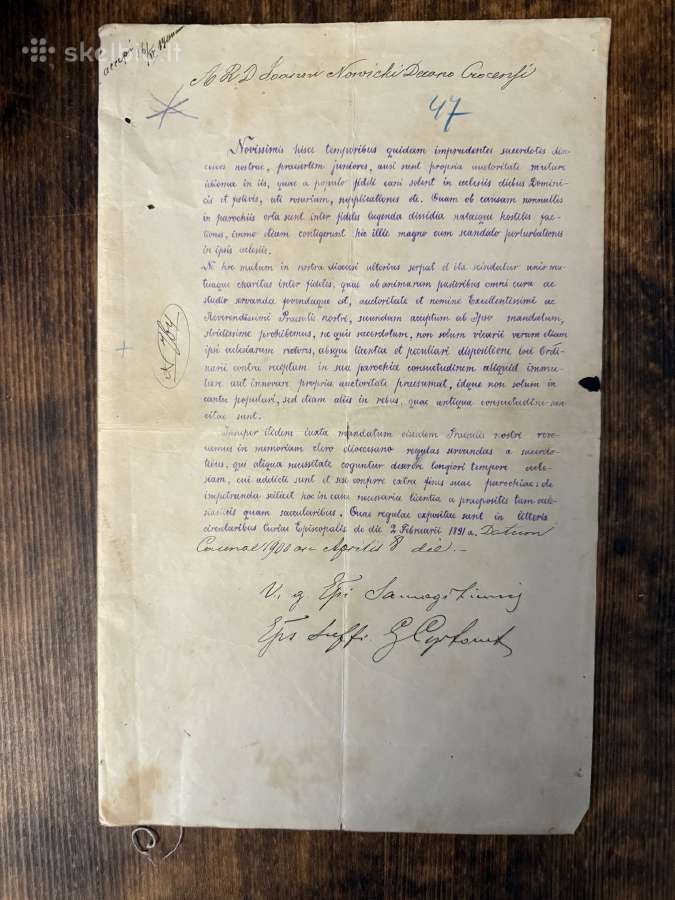 skelbiu.lt
accepi 16/IV 1900
A R D Joanni Nowicki Decano Crocensi
47
Novissimis hisce temporibus quidam imprudentes sacerdotes dioe-
ceseos nostrae, praesertim juniores, ausi sunt propria auctoritate mutare
idioma in iis, quae a populo fideli cani solent in eclesiis diebus Domini-
cis et festivis, uti rosarium, supplicationes etc. Quam ob causam nonnullis
in parochiis orta sunt inter fideles lugenda dissidia nataeque hostiles fac-
tiones, immo etiam contigerunt hic illic magno cum scandalo perturbationes
in ipsis eclesiis.
Ne hoc malum in nostra dioecesi ulterius serpat et ita scindatur unio mu-
tuaque charitas inter fideles, quae ab animarum pastoribus omni cura ac
studio servanda fovendaque est, auctoritate et nomine Excellentissimi ac
Reverendissimi Praesulis nostri, secundum acceptum ab Ipso mandatum,
strictissime prohibemus, ne quis sacerdotum, non solum vicarii verum etiam
ipsi eclesiarum rectores, absque licentia et peculiari dispositione loci Ordi-
narii contra receptam in sua parochia consuetudinem aliquid immu-
tare aut innovare propria auctoritate praesumat, idque non solum in
cantu populari, sed etiam aliis in rebus, quae antiqua consuetudine san-
citae sunt.
Insuper itidem iuxta mandatum eiusdem Praesulis nostri revo-
camus in memoriam clero dioecesano regulas servandas a sacerdo-
tibus, qui aliqua necessitate coguntur deserere longiori tempore ecle-
siam, cui addicti sunt et se conferre extra fines suae parochiae: de
impetranda scilicet hoc in casu necessaria licentia a praepositis tam ecle-
siasticis quam saecularibus. Quae regulae expositae sunt in litteris
circularibus Curiae Episcopalis de die 2 Februarii 1891 a. Datum
Caunae 1900 an Aprilis 8 die.
V. g. Epi Samogitiensis
Eps Suffr. G Cyrtowt